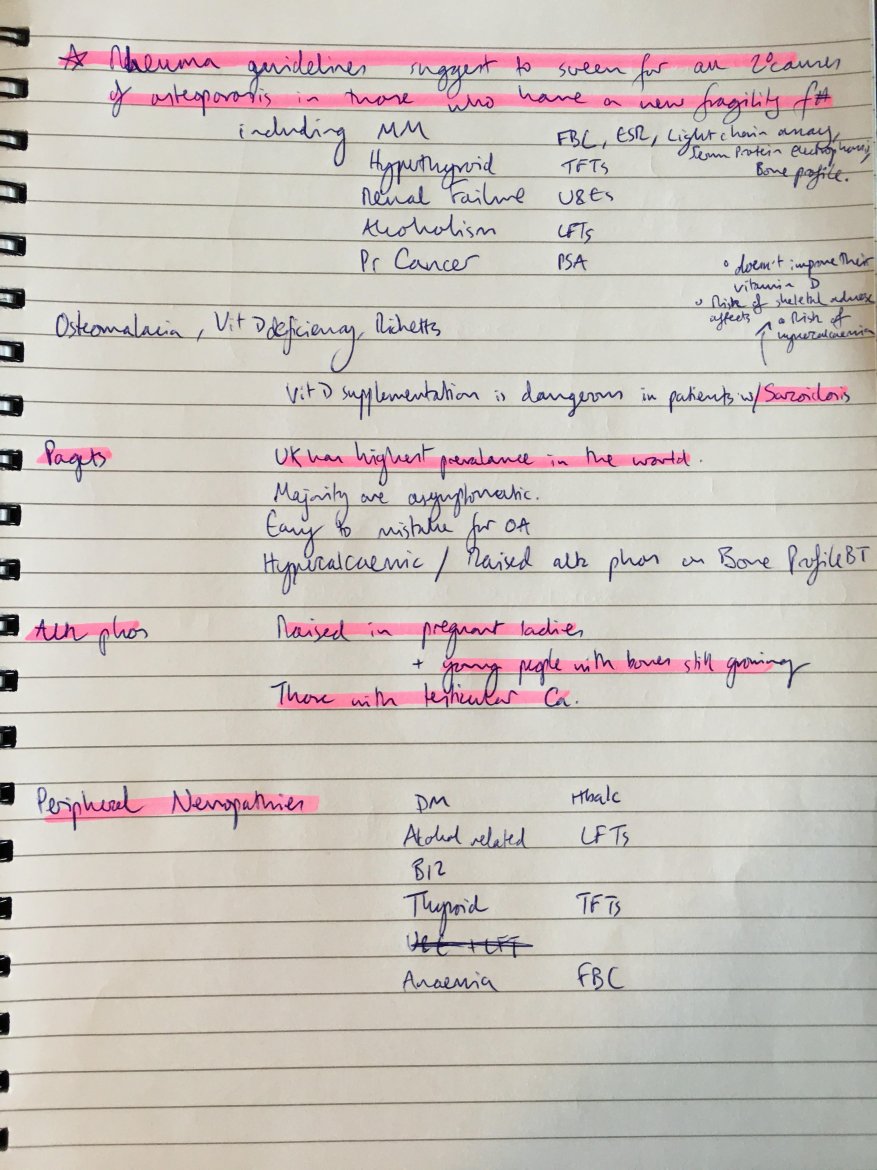 ☆ Rheuma guidelines suggest to screen for all 2° causes
of osteoporosis in those who have a new fragility f#
including MM FBC, ESR, Light chain array,
Serum Protein electrophoresis,
Hypothyroid TFTs Bone profile.
Renal Failure U&Es
Alcoholism LFTs
Pr Cancer PSA
• doesn't improve their
vitamin D
• Risk of skeletal adverse
affects • Risk of
hypercalcaemia
Osteomalacia, Vit D deficiency, Ricketts
Vit D supplementation is dangerous in patients w/ Sarcoidosis
Pagets UK has highest prevalance in the world.
Majority are asymptomatic.
Easy to mistake for OA
Hypercalcaemic / Raised alk phos on Bone Profile BT
Alk phos Raised in pregnant ladies
+ young people with bones still growing
Those with testicular Ca.
Peripheral Neuropathies DM Hba1c
Alcohol related LFTs
B12
Thyroid TFTs
U&E + LFT
Anaemia FBC